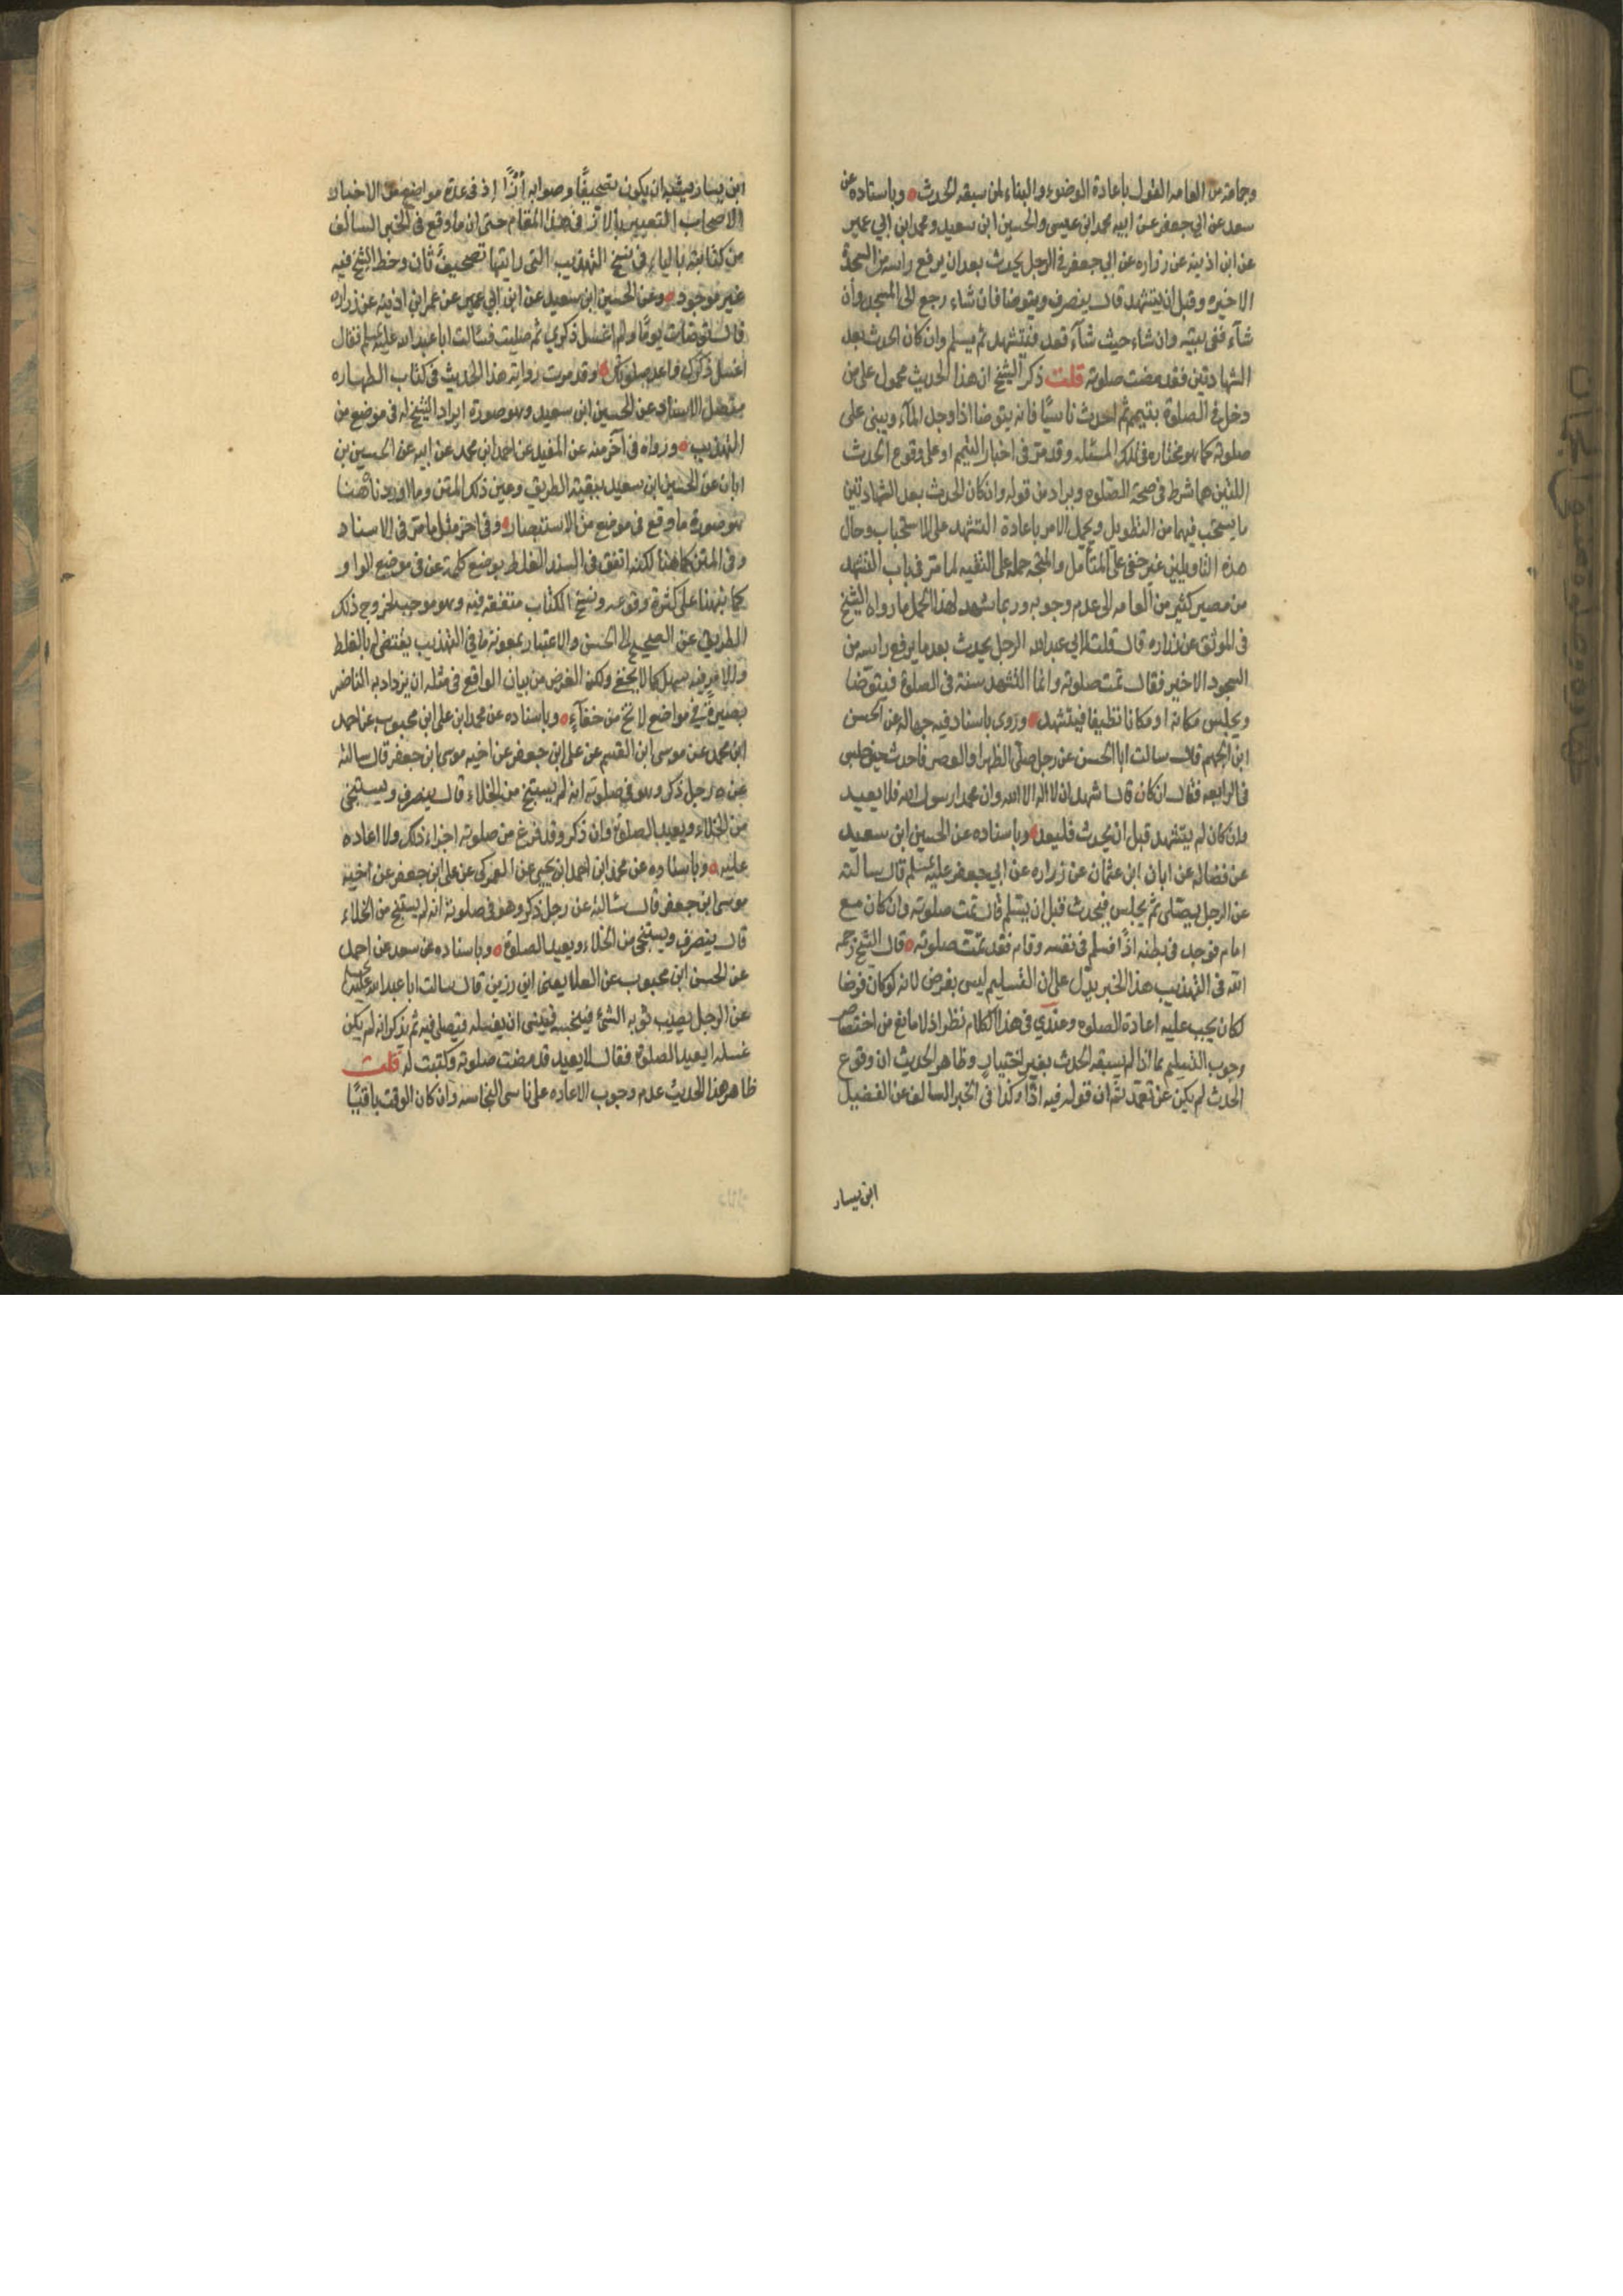 وجماعة من العامه القول باعادة الوضوء والبناء لمن سبقه الحدث وباسناده عن
سعد عن ابي جعفر عن ابيه محمد ابن عيسى والحسين ابن سعيد ومحمد ابن ابي عمير
عن ابن اذينه عن زراره عن ابي جعفر في الرجل يحدث بعد ان يرفع راسه من السجدة
الاخيره وقبل ان يتشهد قال ينصرف ويتوضا فان شاء رجع الى المسجد وان
شآء ففى بيته وان شاء حيث شآء قعد فيتشهد ثم يسلم وان كان الحدث بعد
الشهادتين فقد مضت صلوته قلت ذكر الشيخ ان هذا الحديث محمول على من
دخل في الصلوة بتيمم ثم احدث ناسيًا فانه يتوضا اذا وجد المآء ويبنى على
صلوته كما هو مختاره في تلك المسئله وقد مر في اخبار التيمم او على وقوع الحدث
اللتين هما شرط في صحة الصلوه ويراد من قوله وان كان الحدث بعد الشهادتين
ما يستحب فيهما من التطويل ويحمل الامر باعادة التشهد على الاستحباب وحال
هذه التاويلين غير خفى على المتأمل والمتجه حمله على التقيه لما مر في باب التشهد
من مصير كثير من العامه الى عدم وجوبه وربما شهد لهذا الحمل ما رواه الشيخ
في الموثق عن زراره قال قلت لابي عبد الله الرجل يحدث بعد ما يرفع راسه من
السجود الاخير فقال تمت صلوته وانما التشهد سنة في الصلوة فيتوضا
ويجلس مكانه او مكانا نظيفا فيتشهد وروى باسناد فيه جهاله عن الحسن
ابن الجهم قال سالت ابا الحسن عن رجل صلى الظهر او العصر فاحدث حين جلس
في الرابعه فقال ان كان قال اشهد ان لا اله الا الله وان محمدا رسول الله فلا يعيد
وان كان لم يتشهد قبل ان يحدث فليعد وباسناده عن الحسين ابن سعيد
عن فضاله عن ابان ابن عثمان عن زراره عن ابي جعفر عليه سلم قال سالته
عن الرجل يصلى ثم يجلس فيحدث قبل ان يسلم قال تمت صلوته وان كان مع
امام فوجد في بطنه اذًا فسلم في نفسه وقام فقد تمت صلوته قال الشيخ رحمه
الله في التهذيب هذا الخبر يدل على ان التسليم ليس بفرض لانه لو كان فرضا
لكان يجب عليه اعادة الصلوه وعندي في هذا الكلام نظر اذ لا مانع من اختصاص
وجوب التسليم بما اذا لم يسبقه الحدث بغير اختيار وظاهر الحديث ان وقوع
الحدث لم يكن عن تعمد ثم ان قوله فيه اذًا وكذا في الخبر السالف عن الفضيل
ابن يسار
ابن يسار يشبه ان يكون تصحيفًا وصوابه أزًّا إذ في عدة مواضع من الاخبار
الاصحاب التعبير بالاز في هذا المقام حتى ان ما وقع في الخبر السالف
من كتابته بالياء في نسخ التهذيب التى رايتها تصحيف ثان وخط الشيخ فيه
غير موجود وعن الحسين ابن سعيد عن ابن ابي عمير عن عمر ابن اذينه عن زراره
قال توضات يومًا ولم اغسل ذكري ثم صليت فسالت ابا عبد الله عليه سلم فقال
اغسل ذكرك واعد صلوتك وقد مرت رواية هذا الحديث في كتاب الطهاره
متصل الاسناد عن الحسين ابن سعيد وهو صورة ايراد الشيخ له في موضع من
التهذيب ورواه في آخر منه عن المفيد عن احمد ابن محمد عن ابيه عن الحسين بن
ابان عن الحسين ابن سعيد ببقية الطريق وعين ذلك المتن وما اوردناه هنا
هو صورة ما وقع في موضع من الاستبصار وفى اخر مثل ما مر في الاسناد
وفى المتن كما هنا لكنه اتفق في السند الغلط بوضع كلمة عن في موضع الواو
كما نبهنا على كثرة وقوعه ونسخ الكتاب متفقه فيه وهو موجب لخروج ذلك
الطريق عن الصحيح الى الحسن والاعتبار بمعونة ما في التهذيب يقتضى بالغلط
والامر فيه سهل كما لا يخفى ولكن الغرض من بيان الواقع في مثله ان يزداد به الناضر
بصيرة في مواضع لا تخ من خفآء وباسناده عن محمد ابن على ابن محبوب عن احمد
ابن محمد عن موسى ابن القسم عن على ابن جعفر عن اخيه موسى ابن جعفر قال سالته
عن رجل ذكر وهو في صلوته انه لم يستنج من الخلاء قال ينصرف ويستنجى
من الخلاء ويعيد الصلوة وان ذكر وقد فرغ من صلوته اجزاه ذلك ولا اعاده
عليه وباسناده عن محمد ابن احمد ابن يحيى عن العمركى عن على ابن جعفر عن اخيه
موسى ابن جعفر قال سالته عن رجل ذكر وهو في صلوته انه لم يستنج من الخلاء
قال ينصرف ويستنجى من الخلاء ويعيد الصلوة وباسناده عن سعد عن احمد
عن الحسن ابن محبوب عن العلا يعنى ابن رزين قال سالت ابا عبد الله عليه
عن الرجل يصيب ثوبه الشئ فينجسه فينسى ان يغسله فيصلى فيه ثم يذكر انه لم يكن
غسله ايعيد الصلوة فقال لا يعيد قد مضت صلوته وكتبت له قلت
ظاهر هذا الحديث عدم وجوب الاعاده على ناسى النجاسه وان كان الوقت باقيًا